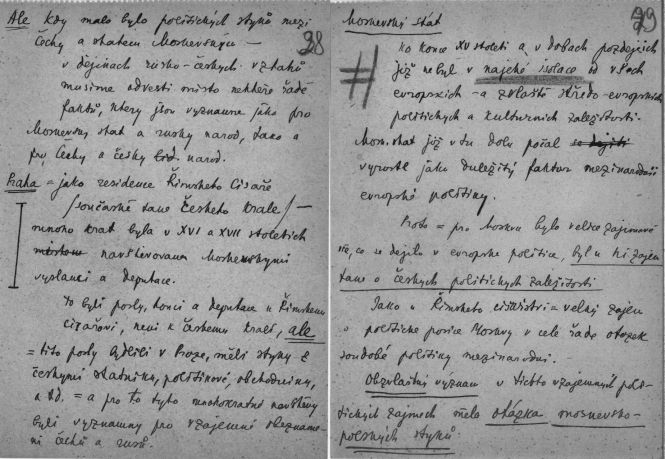 38
Ale kdy malo bylo politických styků mezi
Čechy a statem Moskevským —
v dejinach rusko-českych vztahů
musime odvesti misto nektére řadě
faktů, ktery jsou vyznamne jako pro
Moskevsky stat a rusky narod, tako a
pro Čechy a česky narod.
Praha = jako residence Řimskeho Cisaře
/současně take Českeho krale/ —
mnoho krat byla v XVI a XVII stoletich
navštěvovana Moskevskymi
vyslanci a deputace.
To byli posly, honci a deputace u Řimskemu
cizařovi, neni k českemu krali, ale
= tito posly bydlili v Praze, měli styky z
českymi statniku, politikové, obchodniky,
a td. = a pro to tyto mnohokratné navštěvy
byli vyznamny pro vzajemné obezname-
ni Čechů a rusů.
39
Moskevský stát
ko konce XV stoleti a v dobach pozdejich
již nebyl v najaké isolace od všech
evropskich — a zvlaště středo-evropskich
politickych a kulturnich zaležitosti.
Mosk. stat již v tu dobu počal
vyrostl jako duležitý faktor mezinarodní
evropské politiky.
Proto = pro Moskvu bylo velice zajimavé
vše, co se dejilo v evropske politice, byl u ni zajem
take o českych politickych zaležitosti
Jako u Řimskeho cisařstvi = velky zajem
o politicke posice Moskvy v cele řadě otazek
soudobé politiky mezinarodni. —
Obzvlaštni význam v tichto vzajemnych poli-
tickych zajmech mela otázka moskevsko-
polskych styků